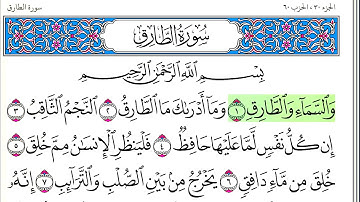 الجزء ٣٠، الحزب ٦٠ سورة الطارق
سُورَةُ الطَّارِقِ
بِسْمِ اللَّهِ الرَّحْمَٰنِ الرَّحِيمِ
وَالسَّمَاءِ وَالطَّارِقِ ١ وَمَا أَدْرَىٰكَ مَا الطَّارِقُ ٢ النَّجْمُ الثَّاقِبُ ٣
إِن كُلُّ نَفْسٍ لَّمَّا عَلَيْهَا حَافِظٌ ٤ فَلْيَنظُرِ الْإِنسَٰنُ مِمَّ خُلِقَ ٥
خُلِقَ مِن مَّاءٍ دَافِقٍ ٦ يَخْرُجُ مِن بَيْنِ الصُّلْبِ وَالتَّرَائِبِ ٧ إِنَّهُ